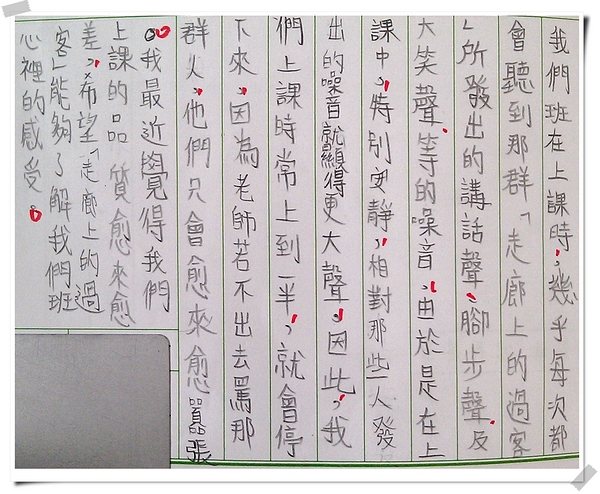 我們班在上課時，幾乎每次都
會聽到那群「走廊上的過客
」所發出的講話聲、腳步聲、及
大笑聲等的噪音，由於是在上
課中，特別安靜，相對那些人發
出的噪音就顯得更大聲，因此，我
們上課時常上到一半，就會停
下來，因為老師若不出去罵那
群人，他們只會愈來愈囂張
。我最近覺得我們
上課的品質愈來愈
差，希望「走廊上的過
客」能夠了解我們班
心裡的感受。